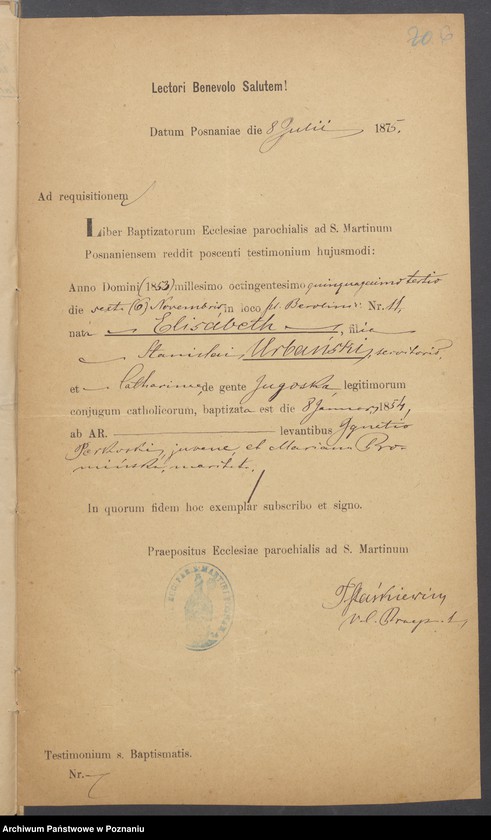 206
Lectori Benevolo Salutem!
Datum Posnaniae die 8 Julii 1875.
Ad requisitionem
Liber Baptizatorum Ecclesiae parochialis ad S. Martinum
Posnaniensem reddit poscenti testimonium hujusmodi:
Anno Domini (1853) millesimo octingentesimo quinquagesimo tertio
die sexta (6) Novembris in loco pl. Berolin: Nr. 11,
nata Elisabeth, filia
Stanislai Urbański, servitoris,
et Catharina, de gente Jugoska legitimorum
conjugum catholicorum, baptizata est die 8 Januar, 1854,
ab AR. levantibus Ignatio
juvene, et Mariana
In quorum fidem hoc exemplar subscribo et signo.
Praepositus Ecclesiae parochialis ad S. Martinum
Testimonium s. Baptismatis.
Nr.
Archiwum Państwowe w Poznaniu